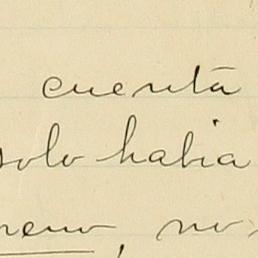 cuenta
solo habia
no